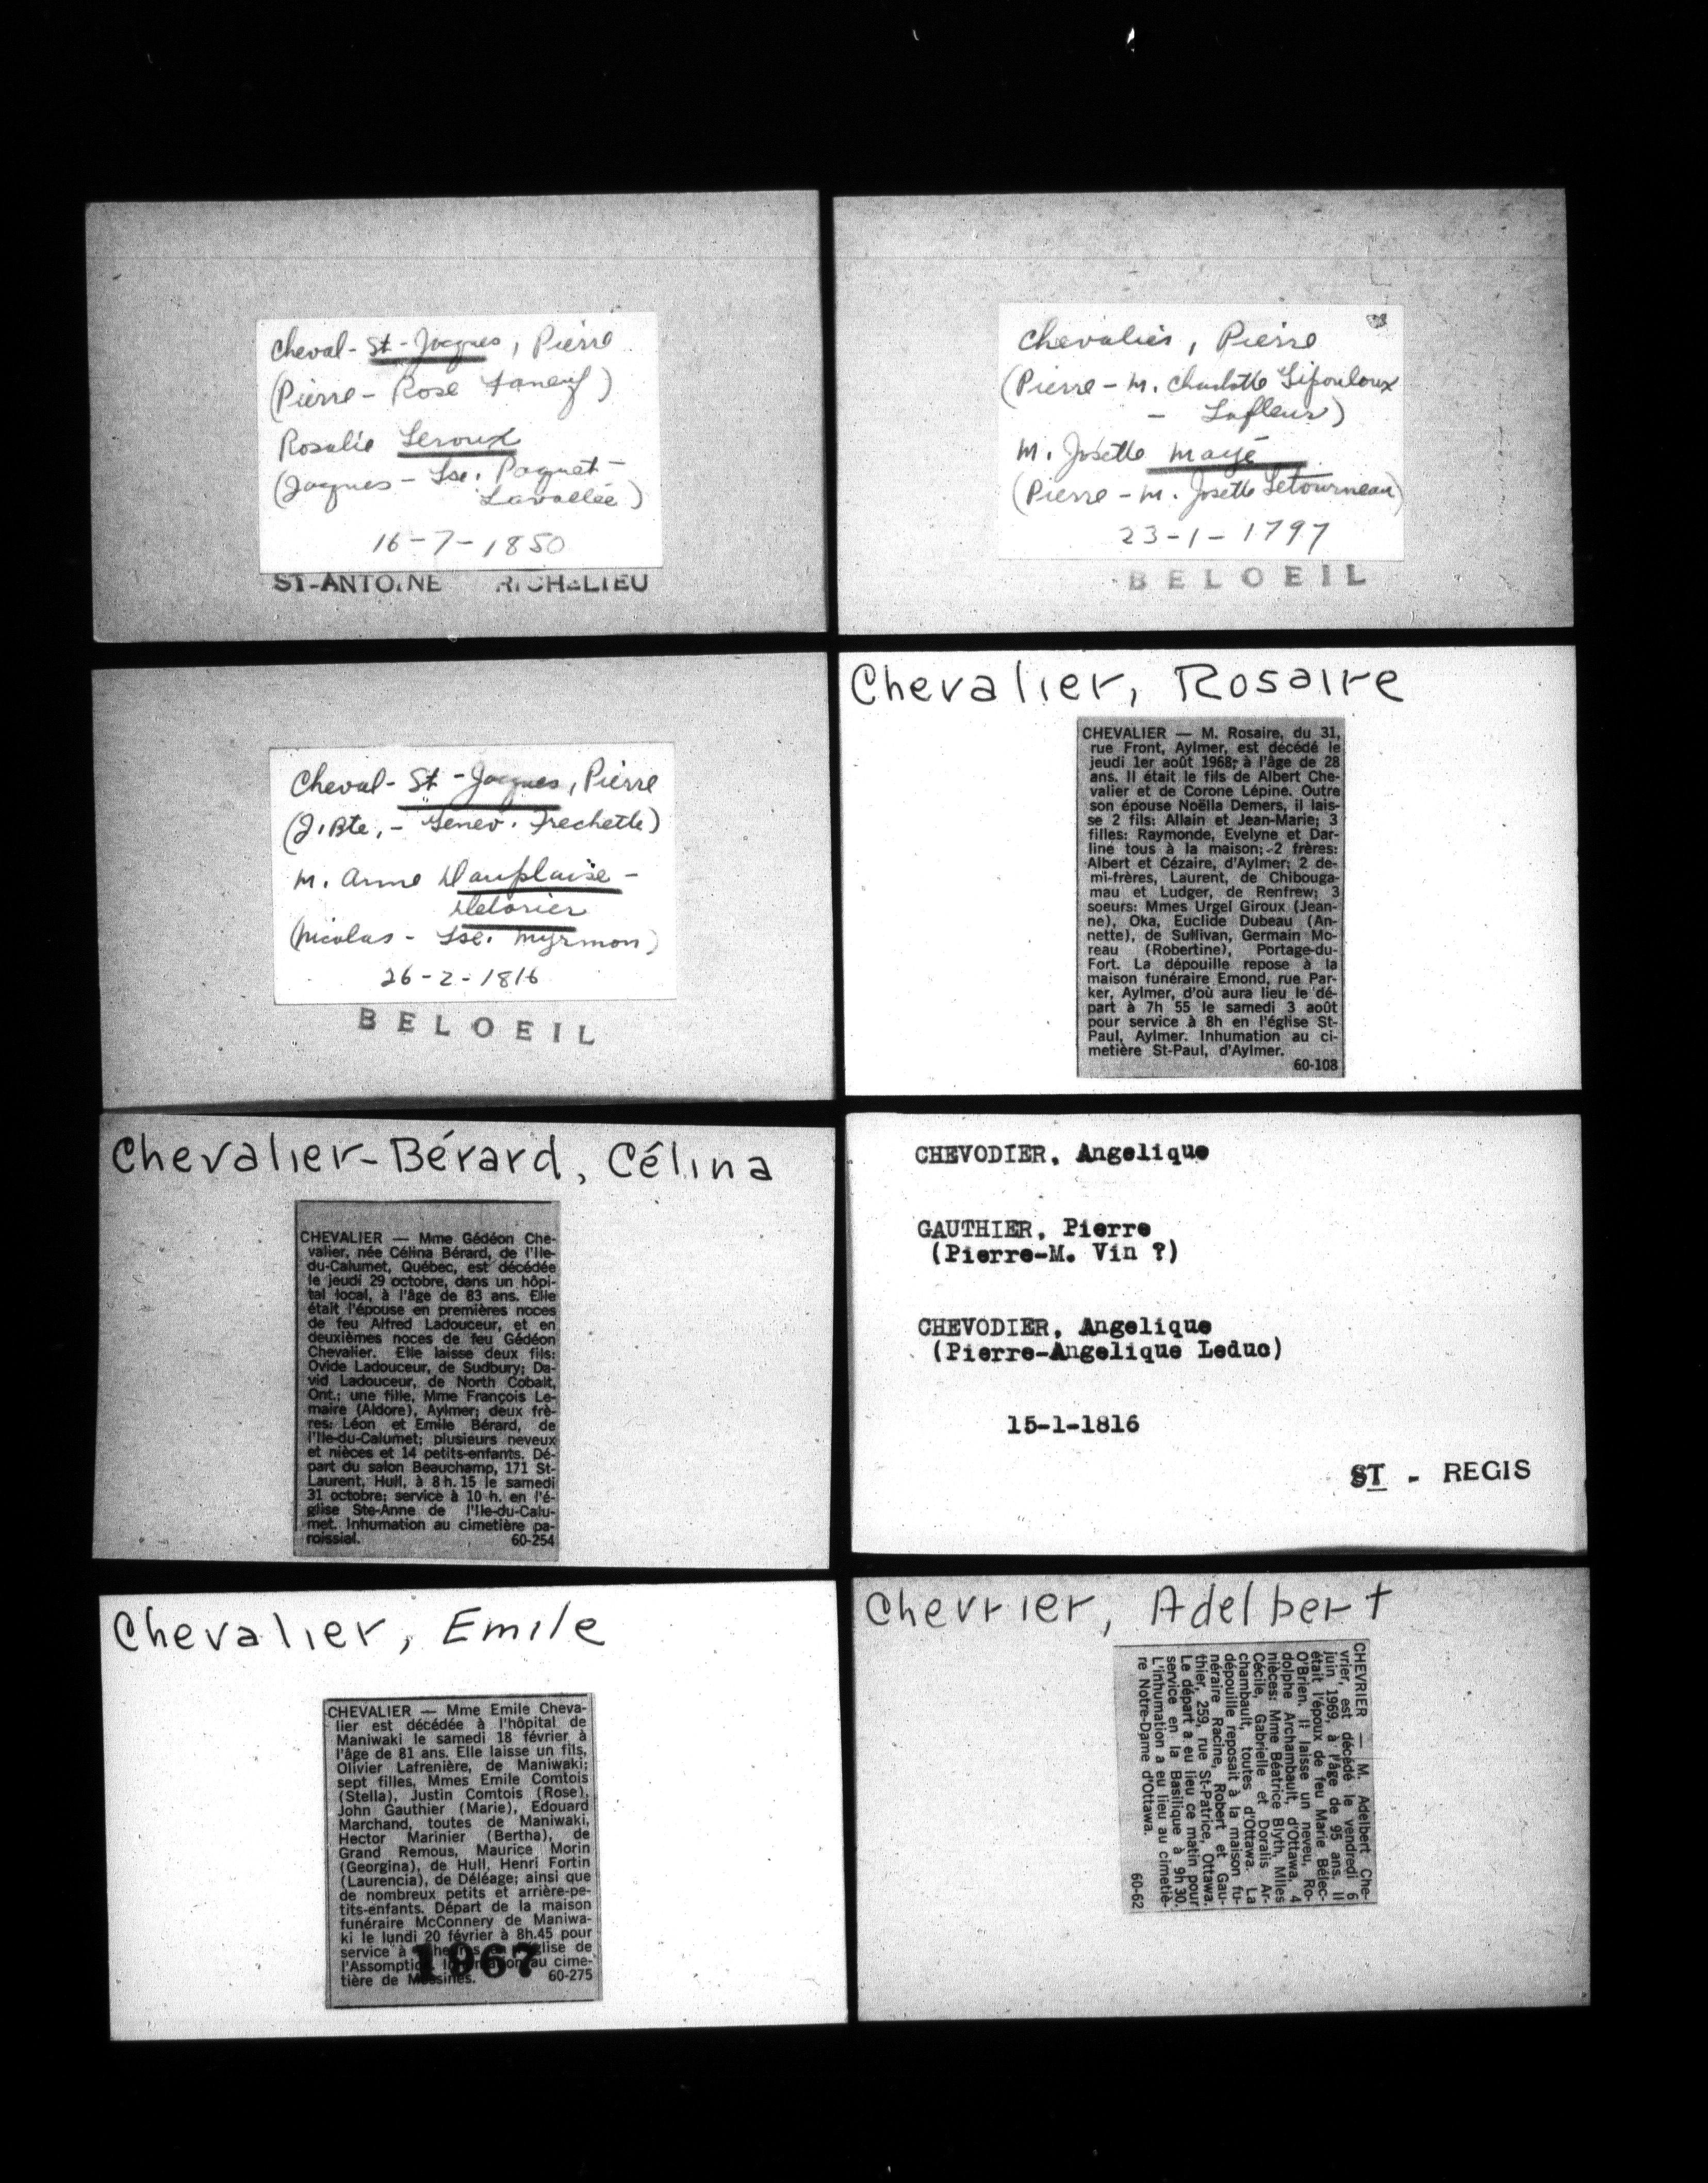 Cheval-St-Jacques, Pierre
(Pierre- Rose Faneuf)
Rosalie Leroux
(Jacques - Lse. Paquet-
Lavallée)
16-7-1850
ST-ANTOINE RICHELIEU
Chevalier, Pierre
(Pierre - m. Charlotte Lipouloux
- Lafleur)
M. Josette Mayé
(Pierre - m. Josette Letourneau)
23-1-1797
BELOEIL
Cheval-St-Jacques, Pierre
(J.Bte.- Genev. Frechette)
M. Anne Dauplaise-
(Nicolas - Lse. Myrmon)
26-2-1816
BELOEIL
Chevalier, Rosaire
CHEVALIER — M. Rosaire, du 31,
rue Front, Aylmer, est décédé le
jeudi 1er août 1968, à l'âge de 28
ans. Il était le fils de Albert Che-
valier et de Corone Lépine. Outre
son épouse Noëlla Demers, il lais-
se 2 fils: Allain et Jean-Marie; 3
filles: Raymonde, Evelyne et Dar-
line tous à la maison; 2 frères:
Albert et Cézaire, d'Aylmer; 2 de-
mi-frères, Laurent, de Chibouga-
mau et Ludger, de Renfrew; 3
soeurs: Mmes Urgel Giroux (Jean-
ne), Oka, Euclide Dubeau (An-
nette), de Sullivan, Germain Mo-
reau (Robertine), Portage-du-
Fort. La dépouille repose à la
maison funéraire Emond, rue Par-
ker, Aylmer, d'où aura lieu le dé-
part à 7h 55 le samedi 3 août
pour service à 8h en l'église St-
Paul, Aylmer. Inhumation au ci-
metière St-Paul, d'Aylmer.
60-108
Chevalier-Bérard, Célina
CHEVALIER — Mme Gédéon Che-
valier, née Célina Bérard, de l'Ile-
du-Calumet, Québec, est décédée
le jeudi 29 octobre, dans un hôpi-
tal local, à l'âge de 83 ans. Elle
était l'épouse en premières noces
de feu Alfred Ladouceur, et en
deuxièmes noces de feu Gédéon
Chevalier. Elle laisse deux fils:
Ovide Ladouceur, de Sudbury; Da-
vid Ladouceur, de North Cobalt,
Ont.; une fille, Mme François Le-
maire (Aldore), Aylmer; deux frè-
res: Léon et Emile Bérard, de
l'Ile-du-Calumet; plusieurs neveux
et nièces et 14 petits-enfants. Dé-
part du salon Beauchamp, 171 St-
Laurent, Hull, à 8 h. 15 le samedi
31 octobre; service à 10 h. en l'é-
glise Ste-Anne de l'Ile-du-Calu-
met. Inhumation au cimetière pa-
roissial. 60-254
CHEVODIER, Angelique
GAUTHIER, Pierre
(Pierre-M. Vin ?)
CHEVODIER, Angelique
(Pierre-Angelique Leduc)
15-1-1816
ST - REGIS
Chevalier, Emile
CHEVALIER — Mme Emile Cheva-
lier est décédée à l'hôpital de
Maniwaki le samedi 18 février à
l'âge de 81 ans. Elle laisse un fils,
Olivier Lafrenière, de Maniwaki;
sept filles, Mmes Emile Comtois
(Stella), Justin Comtois (Rose),
John Gauthier (Marie), Edouard
Marchand, toutes de Maniwaki,
Hector Marinier (Bertha), de
Grand Remous, Maurice Morin
(Georgina), de Hull, Henri Fortin
(Laurencia), de Déléage; ainsi que
de nombreux petits et arrière-pe-
tits-enfants. Départ de la maison
funéraire McConnery de Maniwa-
ki le lundi 20 février à 8h.45 pour
service à heures en l'église de
l'Assomption. Inhumation au cime-
tière de Messines. 60-275
1967
Chevrier, Adelbert
CHEVRIER — M. Adelbert Che-
vrier, est décédé le vendredi 6
juin 1969, à l'âge de 95 ans. Il
était l'époux de feu Marie Bélec-
O'Brien. Il laisse un neveu, Ro-
dolphe Archambault, d'Ottawa, 4
nièces: Mme Béatrice Blyth, Mlles
Cécile, Gabrielle et Doralis Ar-
chambault, toutes d'Ottawa. La
dépouille reposait à la maison fu-
néraire Racine, Robert et Gau-
thier, 259, rue St-Patrice, Ottawa.
Le départ a eu lieu ce matin pour
service en la Basilique à 9h 30.
L'inhumation a eu lieu au cimetiè-
re Notre-Dame d'Ottawa.
60-62